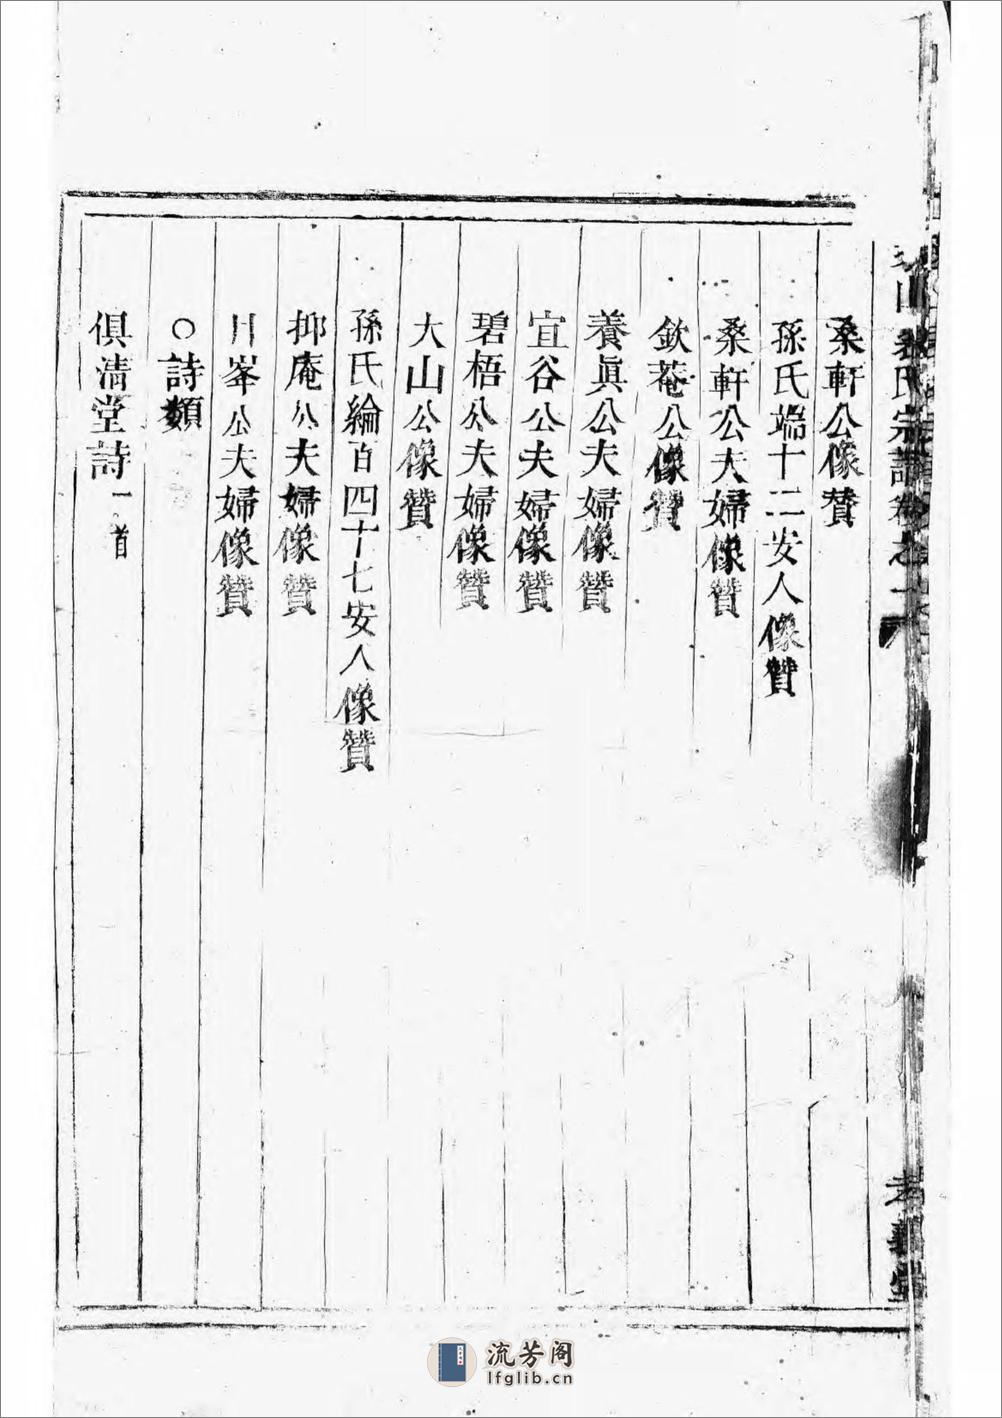 桑軒公像贊
孫氏端十二安人像贊
桑軒公夫婦像贊
欽菴公像贊
養眞公夫婦像贊
宜谷公夫婦像贊
碧梧公夫婦像贊
大山公像贊
孫氏綸百四十七安人像贊
抑庵公夫婦像贊
公夫婦像贊
○詩類
俱清堂詩一首
山 氏宗譜卷之
流芳阁
lfglib.cn